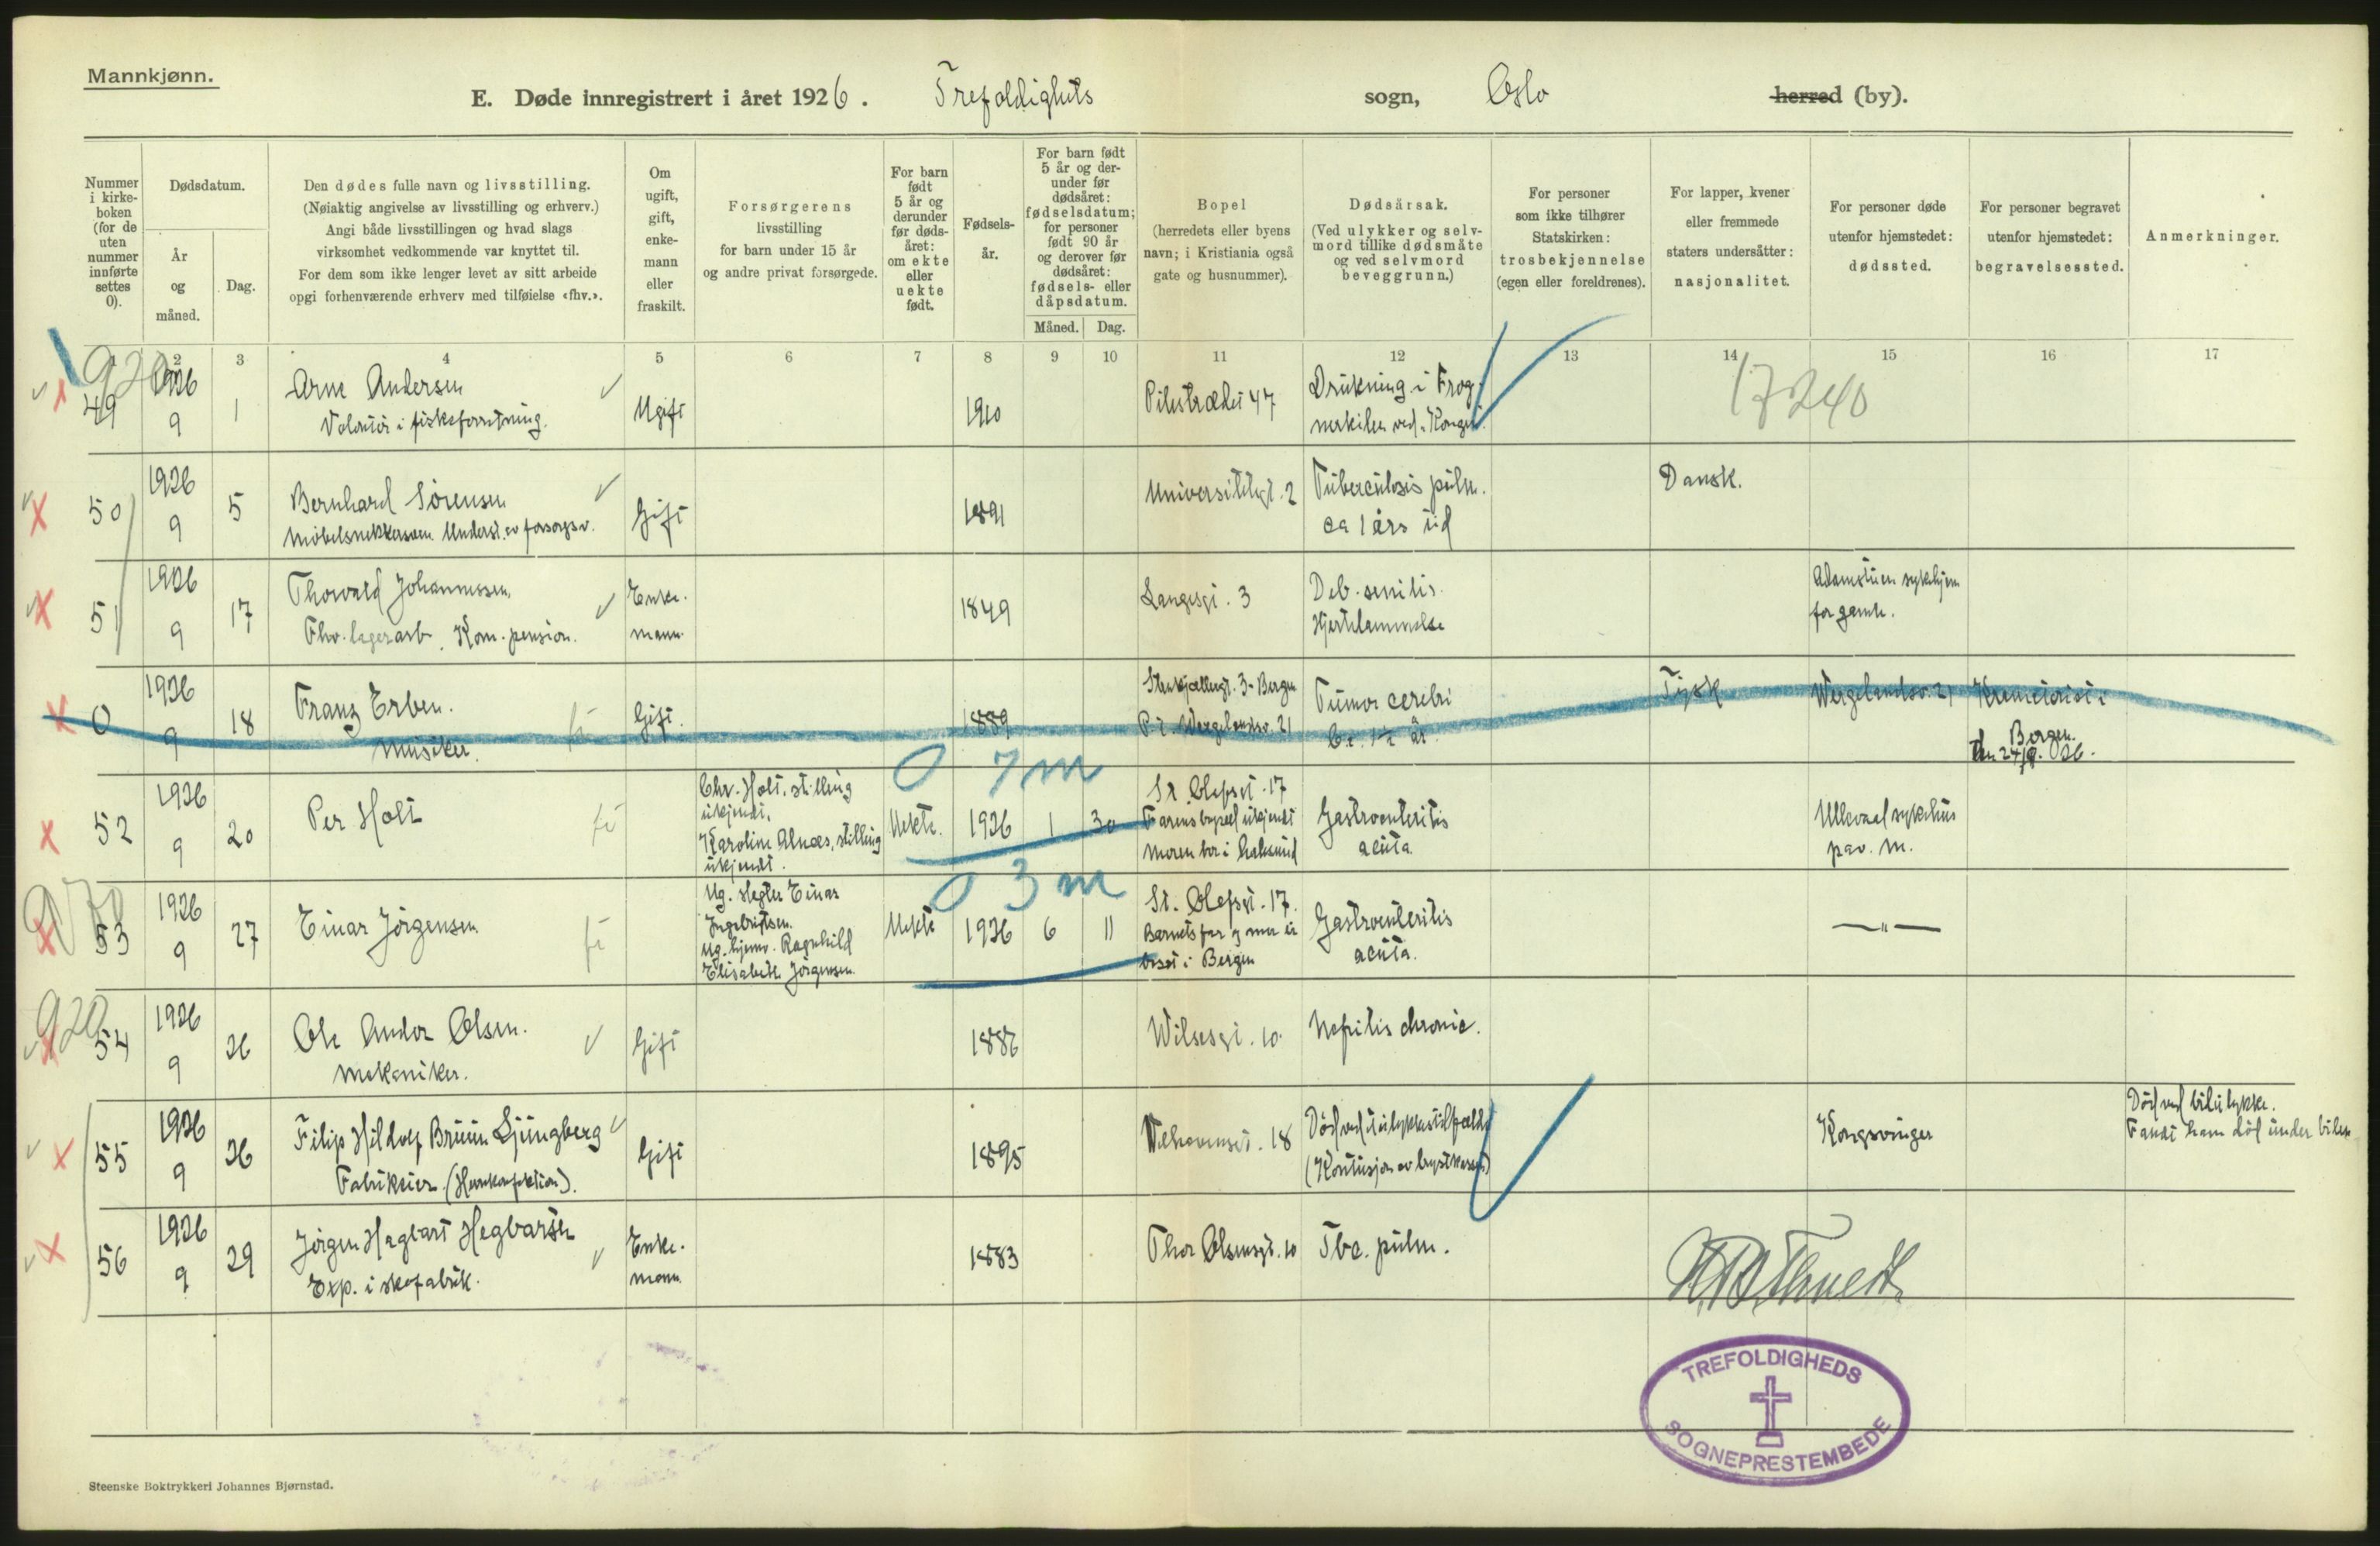 Mannkjønn.
E. Døde innregistrert i året 1926. Trefoldighets sogn, Oslo herred (by).
Nummer i kirke- boken (for de uten nummer innførte settes 0).
Dødsdatum.
År og måned.
Dag.
Den dødes fulle navn og livsstilling.
(Nøiaktig angivelse av livsstilling og erhverv.)
Angi både livsstillingen og hvad slags
virksomhet vedkommende var knyttet til.
For dem som ikke lenger levet av sitt arbeide
opgi forhenværende erhverv med tilføielse «fhv.».
Om ugift, gift, enke- mann eller fraskilt.
Forsørgerens
livsstilling
for barn under 15 år
og andre privat forsørgede.
For barn født 5 år og derunder før døds- året: om ekte eller uekte født.
Fødsels- år.
For barn født 5 år og der- under før dødsåret: fødselsdatum; for personer født 90 år og derover før dødsåret: fødsels- eller dåpsdatum.
Måned. Dag.
Bopel
(herredets eller byens
navn; i Kristiania også
gate og husnummer).
Dødsårsak.
(Ved ulykker og selv-
mord tillike dødsmåte
og ved selvmord
beveggrunn.)
For personer
som ikke tilhører
Statskirken:
trosbekjennelse
(egen eller foreldrenes).
For lapper, kvener
eller fremmede
staters undersåtter:
nasjonalitet.
For personer døde
utenfor hjemstedet:
dødssted.
For personer begravet
utenfor hjemstedet:
begravelsessted.
Anmerkninger.
1 2 3 4 5 6 7 8 9 10 11 12 13 14 15 16 17
920
49 1926 9 1 Arne Andersen Ugift 1910 Pilestrædet 47 Drukning i Frog-
Volontør i fiskeforretning. nerkilen ved "Kongen".
17240
50 1926 9 5 Bernhard Sörensen Gift 1891 Universitetsgt. 2 Tuberculosis pulm. Dansk.
Möbelsnekkersven. Underst. av forsorgsv. ca 1 års tid
51 1926 9 17 Thorvald Johannessen Enke- 1849 Langesgt. 3 Deb. senilis. Adamstuen sykehjem
Fhv. lagerarb. Kom. pension. mann. Hjertelammelse for gamle.
0 1926 9 18 Franz Erben. Gift. 1889 3 - Bergen Tumor cerebri Tysk Wergelandsv. 21 Kremeterist i
Musiker. P.t. Wergelandsv. 21 Ca. 1½ år. Bergen.
den 24/9. 26.
0 7 m
52 1926 9 20 Per Holt Chr. Holt, stilling
ukjendt.
Karoline Alnæs, stilling
ukjendt. Uekte. 1926 1 30 St. Olafsgt. 17
Farens bopæl ukjendt
Moren bor i Gastroenteritis
acuta. Ullevaal sykehus
pav. M.
0 3 m
970
53 1926 9 27 Einar Jörgensen Ug. Einar
Ingebrigtsen.
Ug. hjemv. Ragnhild
Elisabeth Jörgensen. Uekte 1926 6 11 St. Olafsgt. 17.
Barnets far og mor er
bosat i Bergen Gastroenteritis
acuta. — " —
920
54 1926 9 26 Ole Andor Olsen. Gift 1886 Wilsesgt. 10. Nefritis chronic.
Mekaniker.
55 1926 9 26 Filip Hildolf Bruun Ljungberg Gift 1895 18 Död ved ulykkestilfælde Kongsvinger Död ved bilulykke.
Fabrikeier. (Herrekonfektion). (Kontusjon av brystkassen) Fandt ham död under bilen
56 1926 9 29 Jörgen Hagbart Hegbarth Enke- 1883 Thor Olsensgt. 10 Tbc. pulm.
Exp. i skofabrik. mann.
TREFOLDIGHEDS
SOGNEPRESTEMBEDE
Steenske Boktrykkeri Johannes Bjørnstad.